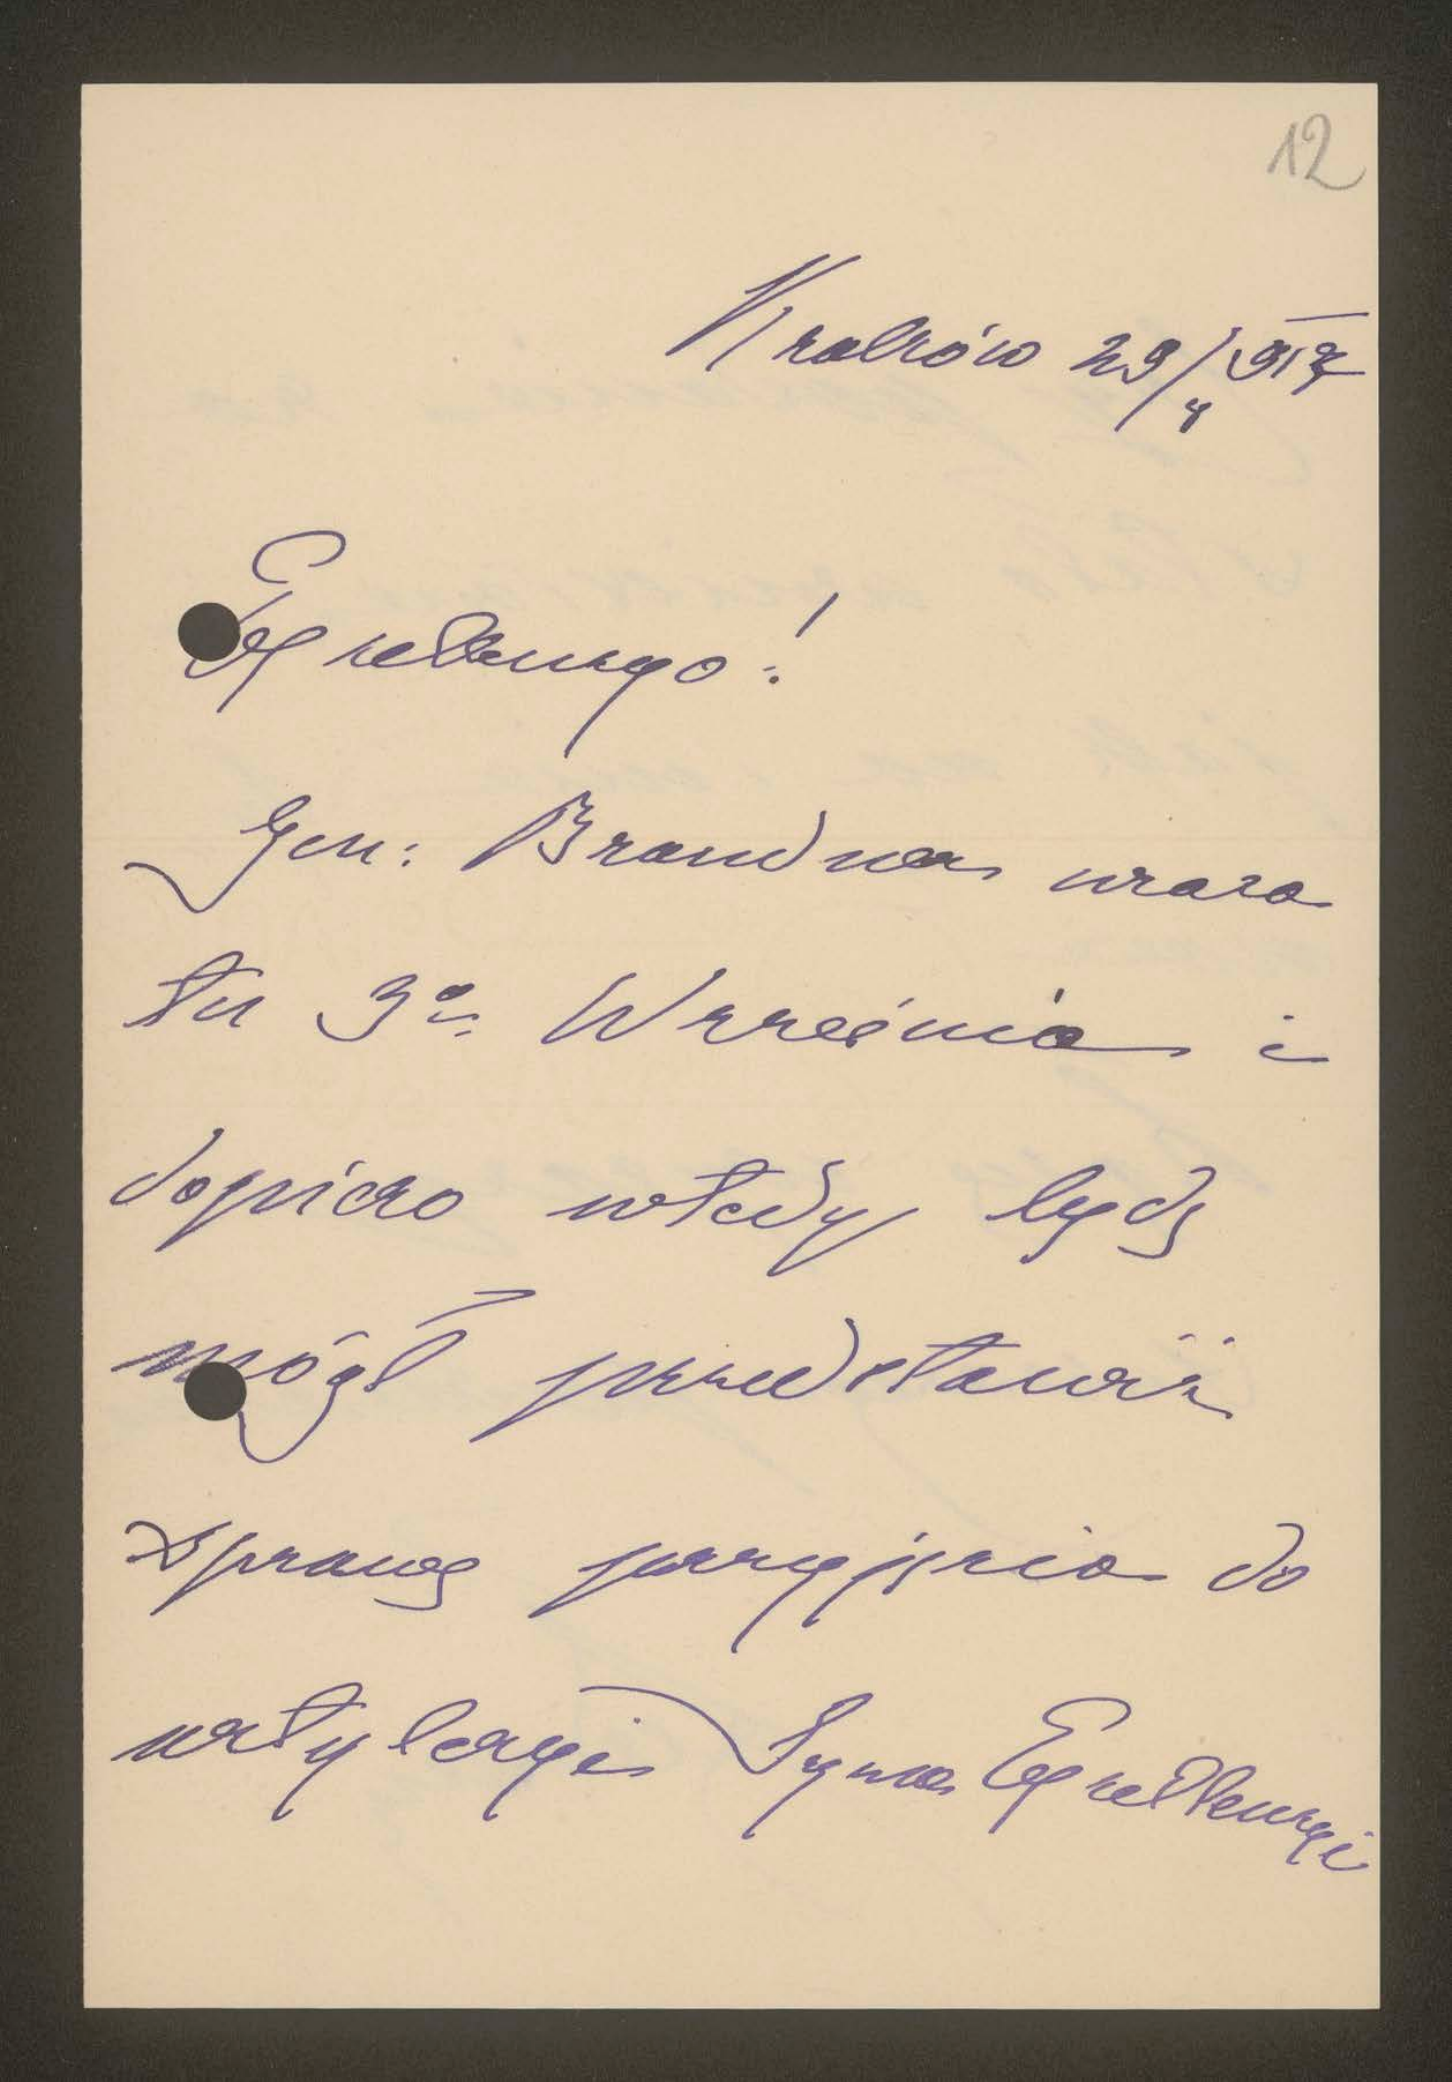 12
Kraków 29/8 917
Excellencyo!
Gen: Brandner wraca
tu 3go Września i
dopiero wtedy będę
mógł przedstawić
sprawę przyjęcia do
artyleryi Syna Excellencyi